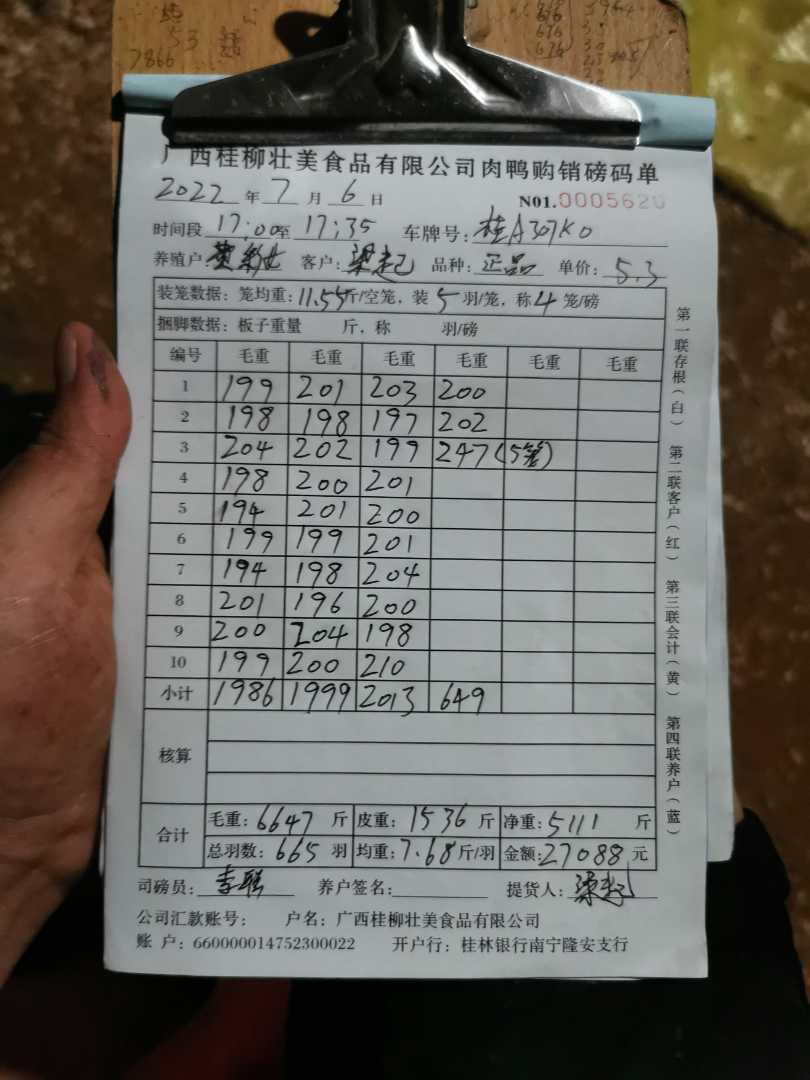 广西桂柳壮美食品有限公司肉鸭购销磅码单
2022 年 7 月 6 日 N01.0005620
时间段 17:00 至 17:35 车牌号: 桂A307K0
养殖户: 黄 客户: 梁起 品种: 正品 单价: 5.3
装笼数据: 笼均重: 11.55 斤/空笼, 装 5 羽/笼, 称 4 笼/磅
捆脚数据: 板子重量 斤, 称 羽/磅
编号 毛重 毛重 毛重 毛重 毛重 毛重
1 199 201 203 200
2 198 198 197 202
3 204 202 199 247(5笼)
4 198 200 201
5 194 201 200
6 199 199 201
7 194 198 204
8 201 196 200
9 200 204 198
10 199 200 210
小计 1986 1999 2013 649
核算
合计
毛重: 6647 斤 皮重: 1536 斤 净重: 5111 斤
总羽数: 665 羽 均重: 7.68 斤/羽 金额: 27088 元
司磅员: 李 养户签名: 提货人: 梁起
公司汇款账号: 户名: 广西桂柳壮美食品有限公司
账 户: 660000014752300022 开户行: 桂林银行南宁隆安支行
第一联存根(白) 第二联客户(红) 第三联会计(黄) 第四联养户(蓝)